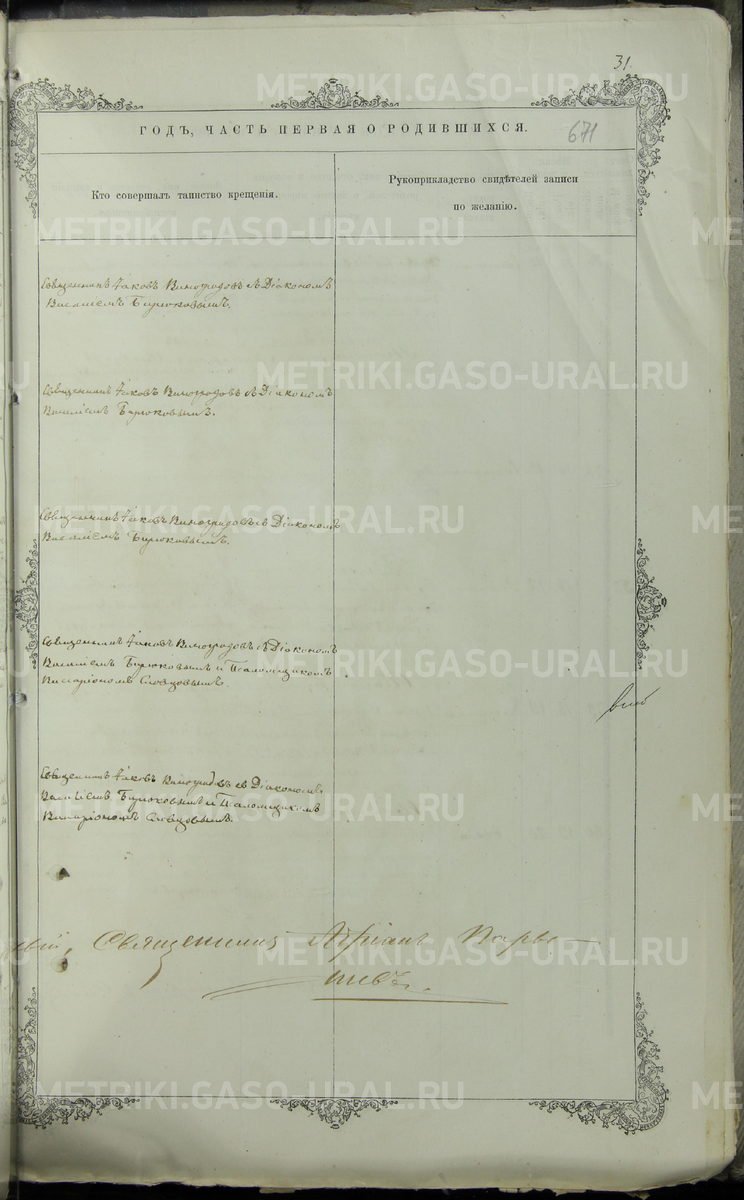 31.
ГОДЪ, ЧАСТЬ ПЕРВАЯ О РОДИВШИХСЯ.
671
Кто совершалъ таинство крещенія.
Рукоприкладство свидѣтелей записи
по желанію.
Священникъ Іаковъ Виноградовъ съ Діакономъ
Василіемъ Бирюковымъ.
Священникъ Іаковъ Виноградовъ съ Діакономъ
Василіемъ Бирюковымъ.
Священникъ Іаковъ Виноградовъ съ Діакономъ
Василіемъ Бирюковымъ.
Священникъ Іаковъ Виноградовъ съ Діакономъ
Василіемъ Бирюковымъ и Псаломщикомъ
Словцовымъ.
Священникъ Іаковъ Виноградовъ съ Діакономъ
Василіемъ Бирюковымъ и Псаломщикомъ
Словцовымъ.
Священникъ
METRIKI.GASO-URAL.RU